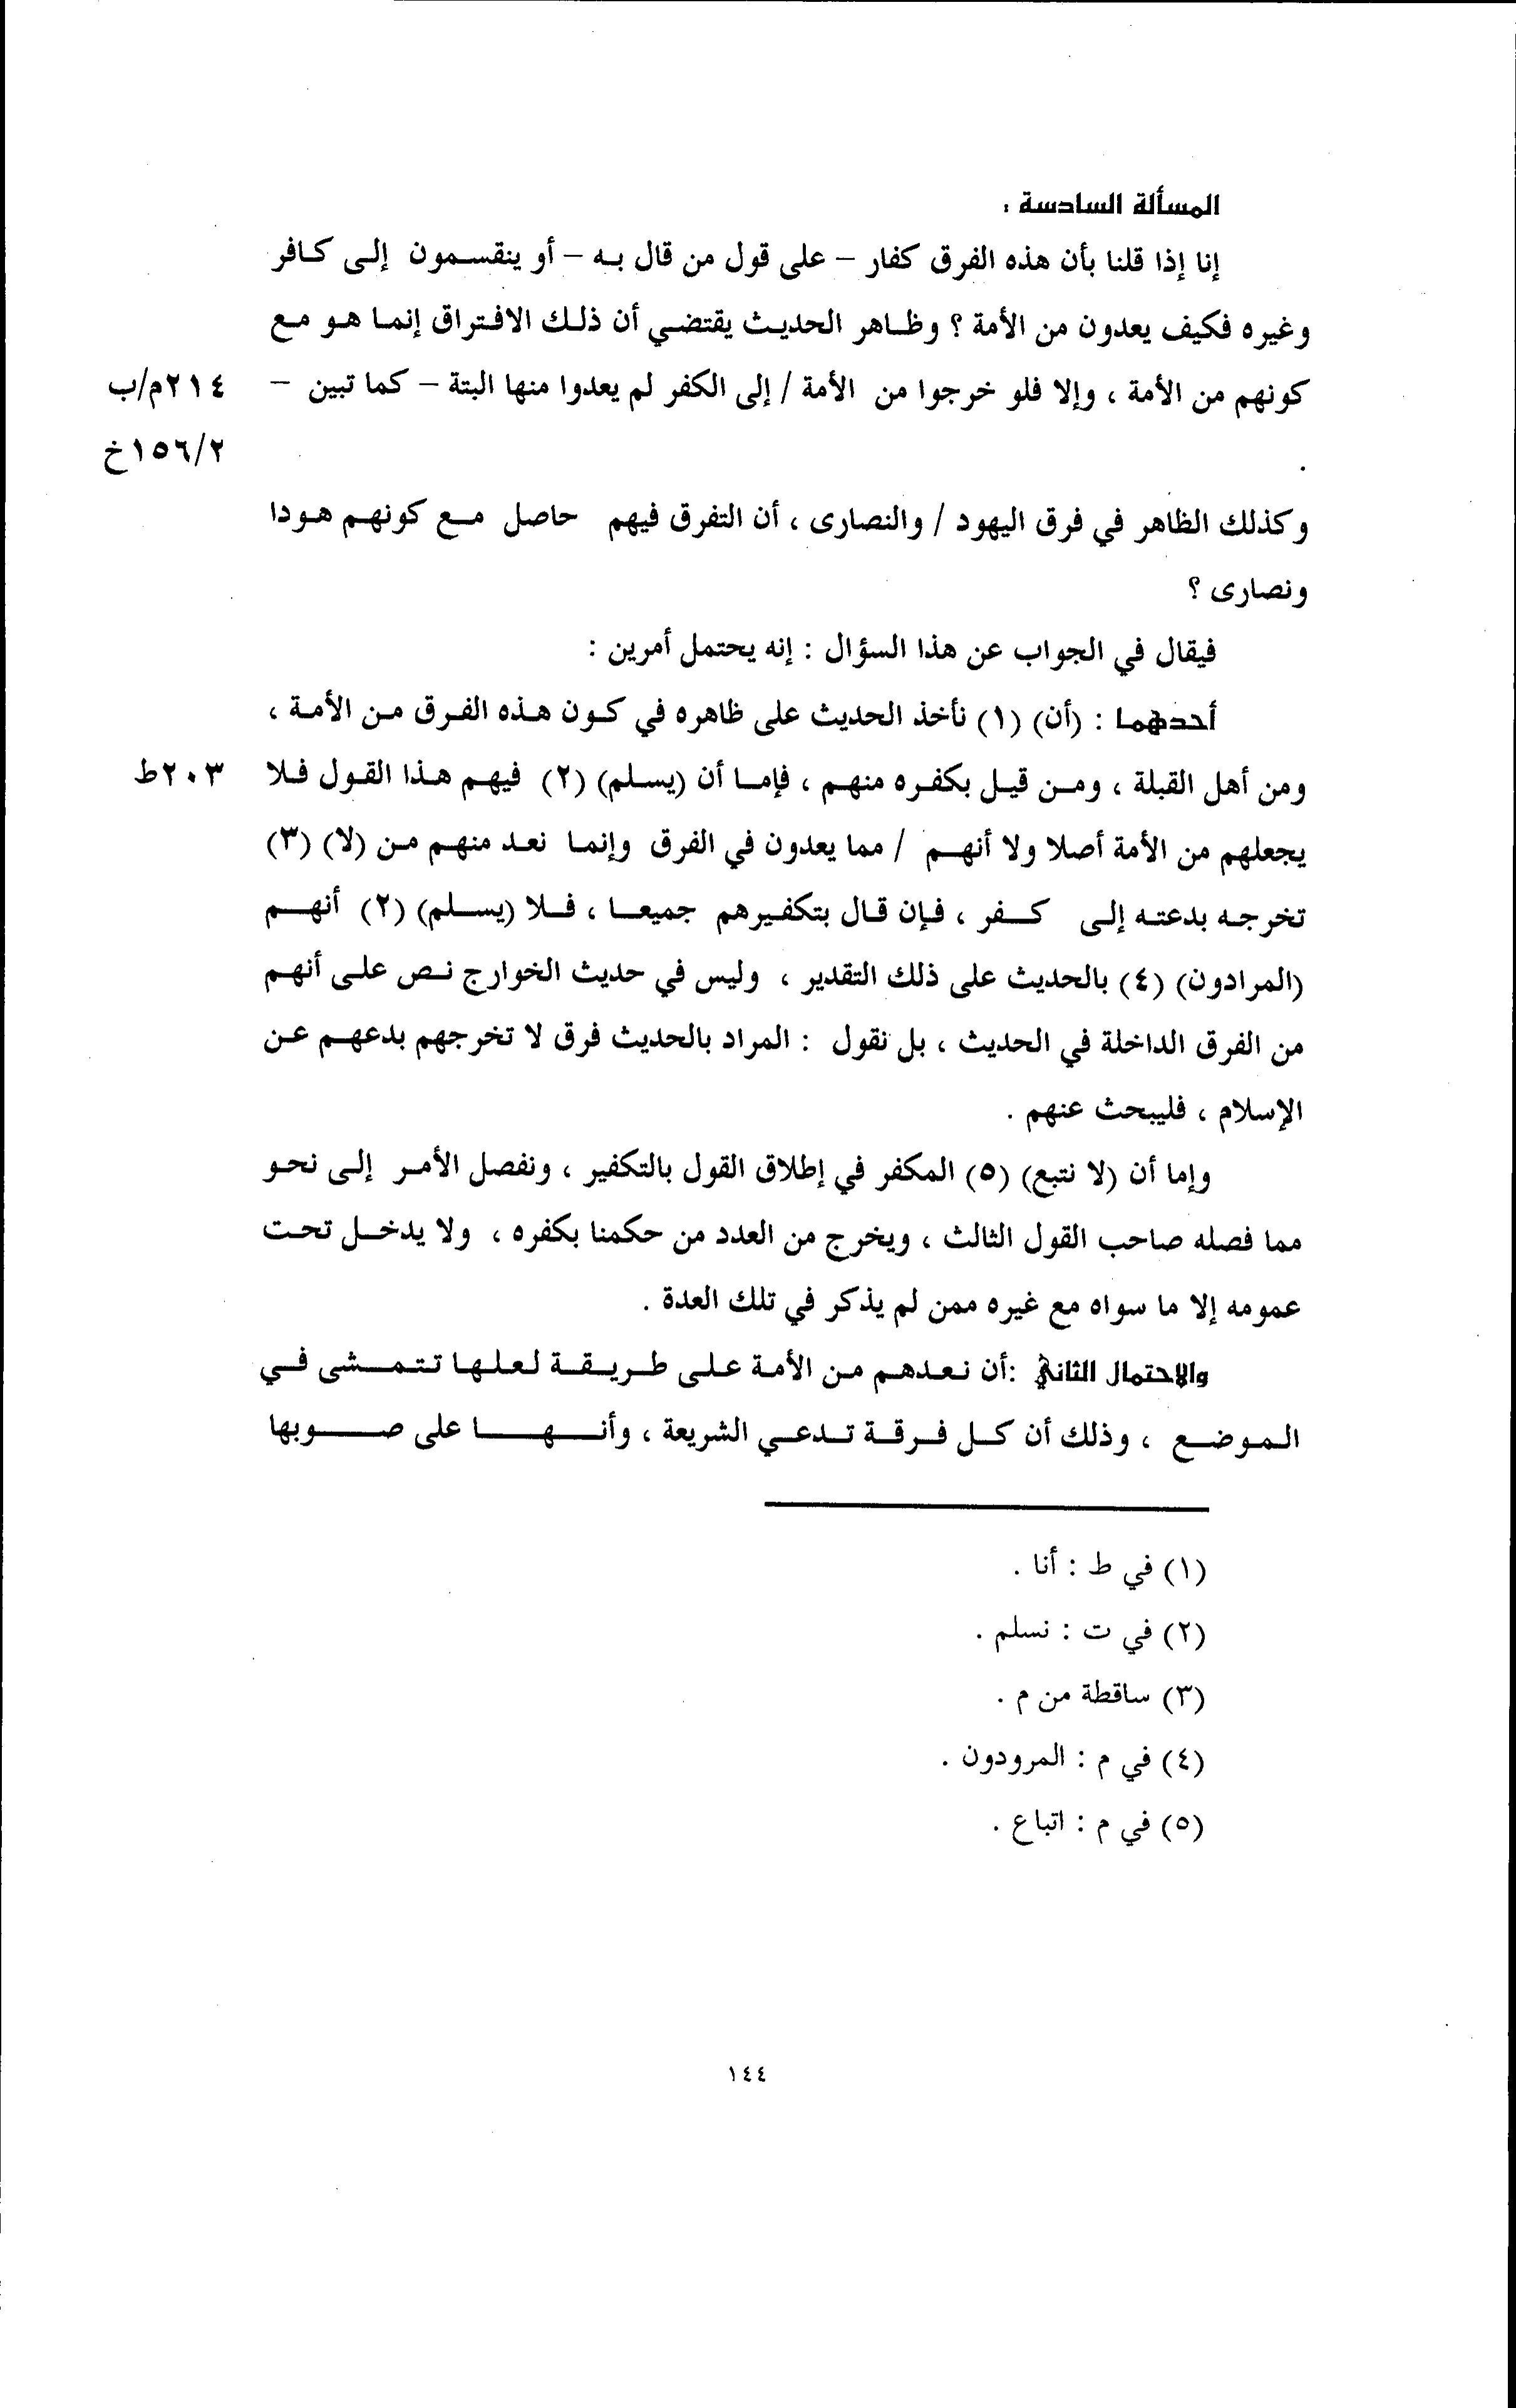 المسألة السادسة :
إنا إذا قلنا بأن هذه الفرق كفار – على قول من قال به – أو ينقسمون إلى كافر
وغيره فكيف يعدون من الأمة ؟ وظاهر الحديث يقتضي أن ذلك الافتراق إنما هو مع
كونهم من الأمة ، وإلا فلو خرجوا من الأمة / إلى الكفر لم يعدوا منها البتة – كما تبين – ٢١٤م/ب
. ١٥٦/٢خ
وكذلك الظاهر في فرق اليهود / والنصارى ، أن التفرق فيهم حاصل مع كونهم هودا
ونصارى ؟
فيقال في الجواب عن هذا السؤال : إنه يحتمل أمرين :
أحدهما : (أن) (١) نأخذ الحديث على ظاهره في كون هذه الفرق من الأمة ،
ومن أهل القبلة ، ومن قيل بكفره منهم ، فإما أن (يسلم) (٢) فيهم هذا القول فلا ٢٠٣ط
يجعلهم من الأمة أصلا ولا أنهم / مما يعدون في الفرق وإنما نعد منهم من (لا) (٣)
تخرجه بدعته إلى كفر ، فإن قال بتكفيرهم جميعا ، فلا (يسلم) (٢) أنهم
(المرادون) (٤) بالحديث على ذلك التقدير ، وليس في حديث الخوارج نص على أنهم
من الفرق الداخلة في الحديث ، بل نقول : المراد بالحديث فرق لا تخرجهم بدعهم عن
الإسلام ، فليبحث عنهم .
وإما أن (لا نتبع) (٥) المكفر في إطلاق القول بالتكفير ، ونفصل الأمر إلى نحو
مما فصله صاحب القول الثالث ، ويخرج من العدد من حكمنا بكفره ، ولا يدخل تحت
عمومه إلا ما سواه مع غيره ممن لم يذكر في تلك العدة .
والاحتمال الثاني :أن نعدهم من الأمة على طريقة لعلها تتمشى في
الموضع ، وذلك أن كل فرقة تدعي الشريعة ، وأنها على صوبها
(١) في ط : أنا .
(٢) في ت : نسلم .
(٣) ساقطة من م .
(٤) في م : المرودون .
(٥) في م : اتباع .
١٤٤